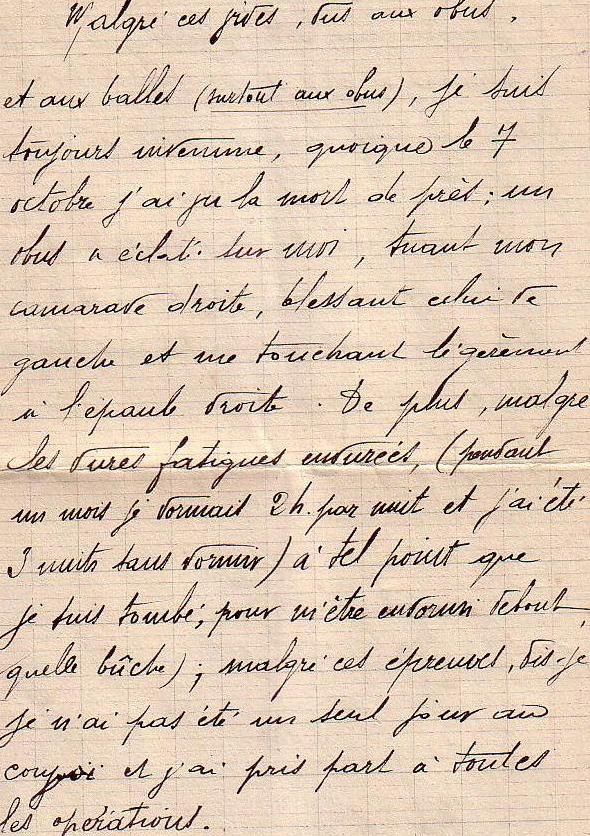 Malgré ces pertes, dus aux obus,
et aux balles (surtout aux obus), je suis
toujours indemne, quoique le 7
octobre j'ai vu la mort de près; un
obus a éclaté sur moi, tuant mon
camarade droite, blessant celui de
gauche et me touchant légèrement
à l'épaule droite. De plus, malgré
les dures fatigues endurées, (pendant
un mois je dormais 2h. par nuit et j'ai été
3 nuits sans dormir) à tel point que
je suis tombé, pour m'être endormi debout,
quelle bûche); malgré ces épreuves, dis-je
je n'ai pas été un seul jour au
et j'ai pris part à toutes
les opérations.